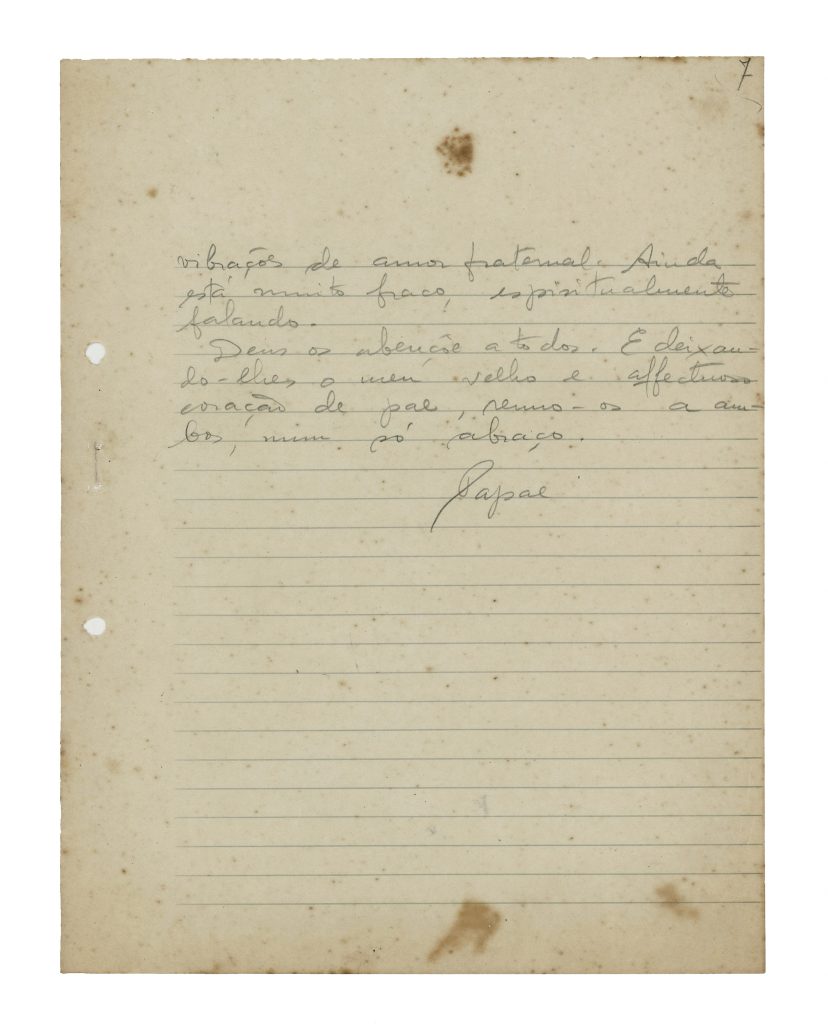 7
vibrações de amor fraternal. Ainda
está muito fraco, espiritualmente
falando.
Deus os abençõe a todos. E deixan-
do-lhes o meu velho e affectuoso
coração de pae, reuno-os a am-
bos, num só abraço.
Papae